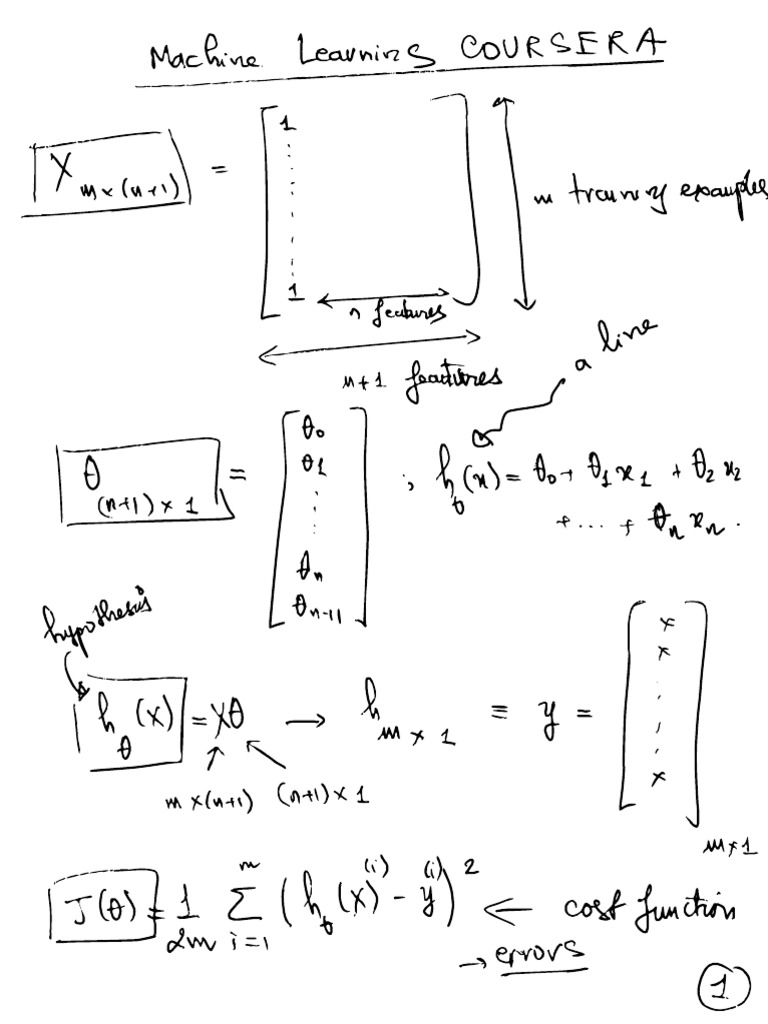 Machine Learning COURSERA
X m×(n+1) = [ 1 ⋮ 1 ]
m training examples
n features
n+1 features
a line
θ (n+1)×1 = [ θ0 θ1 ⋮ θn θn+1 ] ; hθ(x) = θ0 + θ1 x1 + θ2 x2
+ ... + θn xn.
hypothesis
hθ(x) = Xθ → h m×1 ≡ y = [ × × ⋮ × ] m×1
m×(n+1) (n+1)×1
J(θ) = 1/2m Σ i=1 m (hθ(x)(i) - y(i))2 ← cost function
→ errors
1